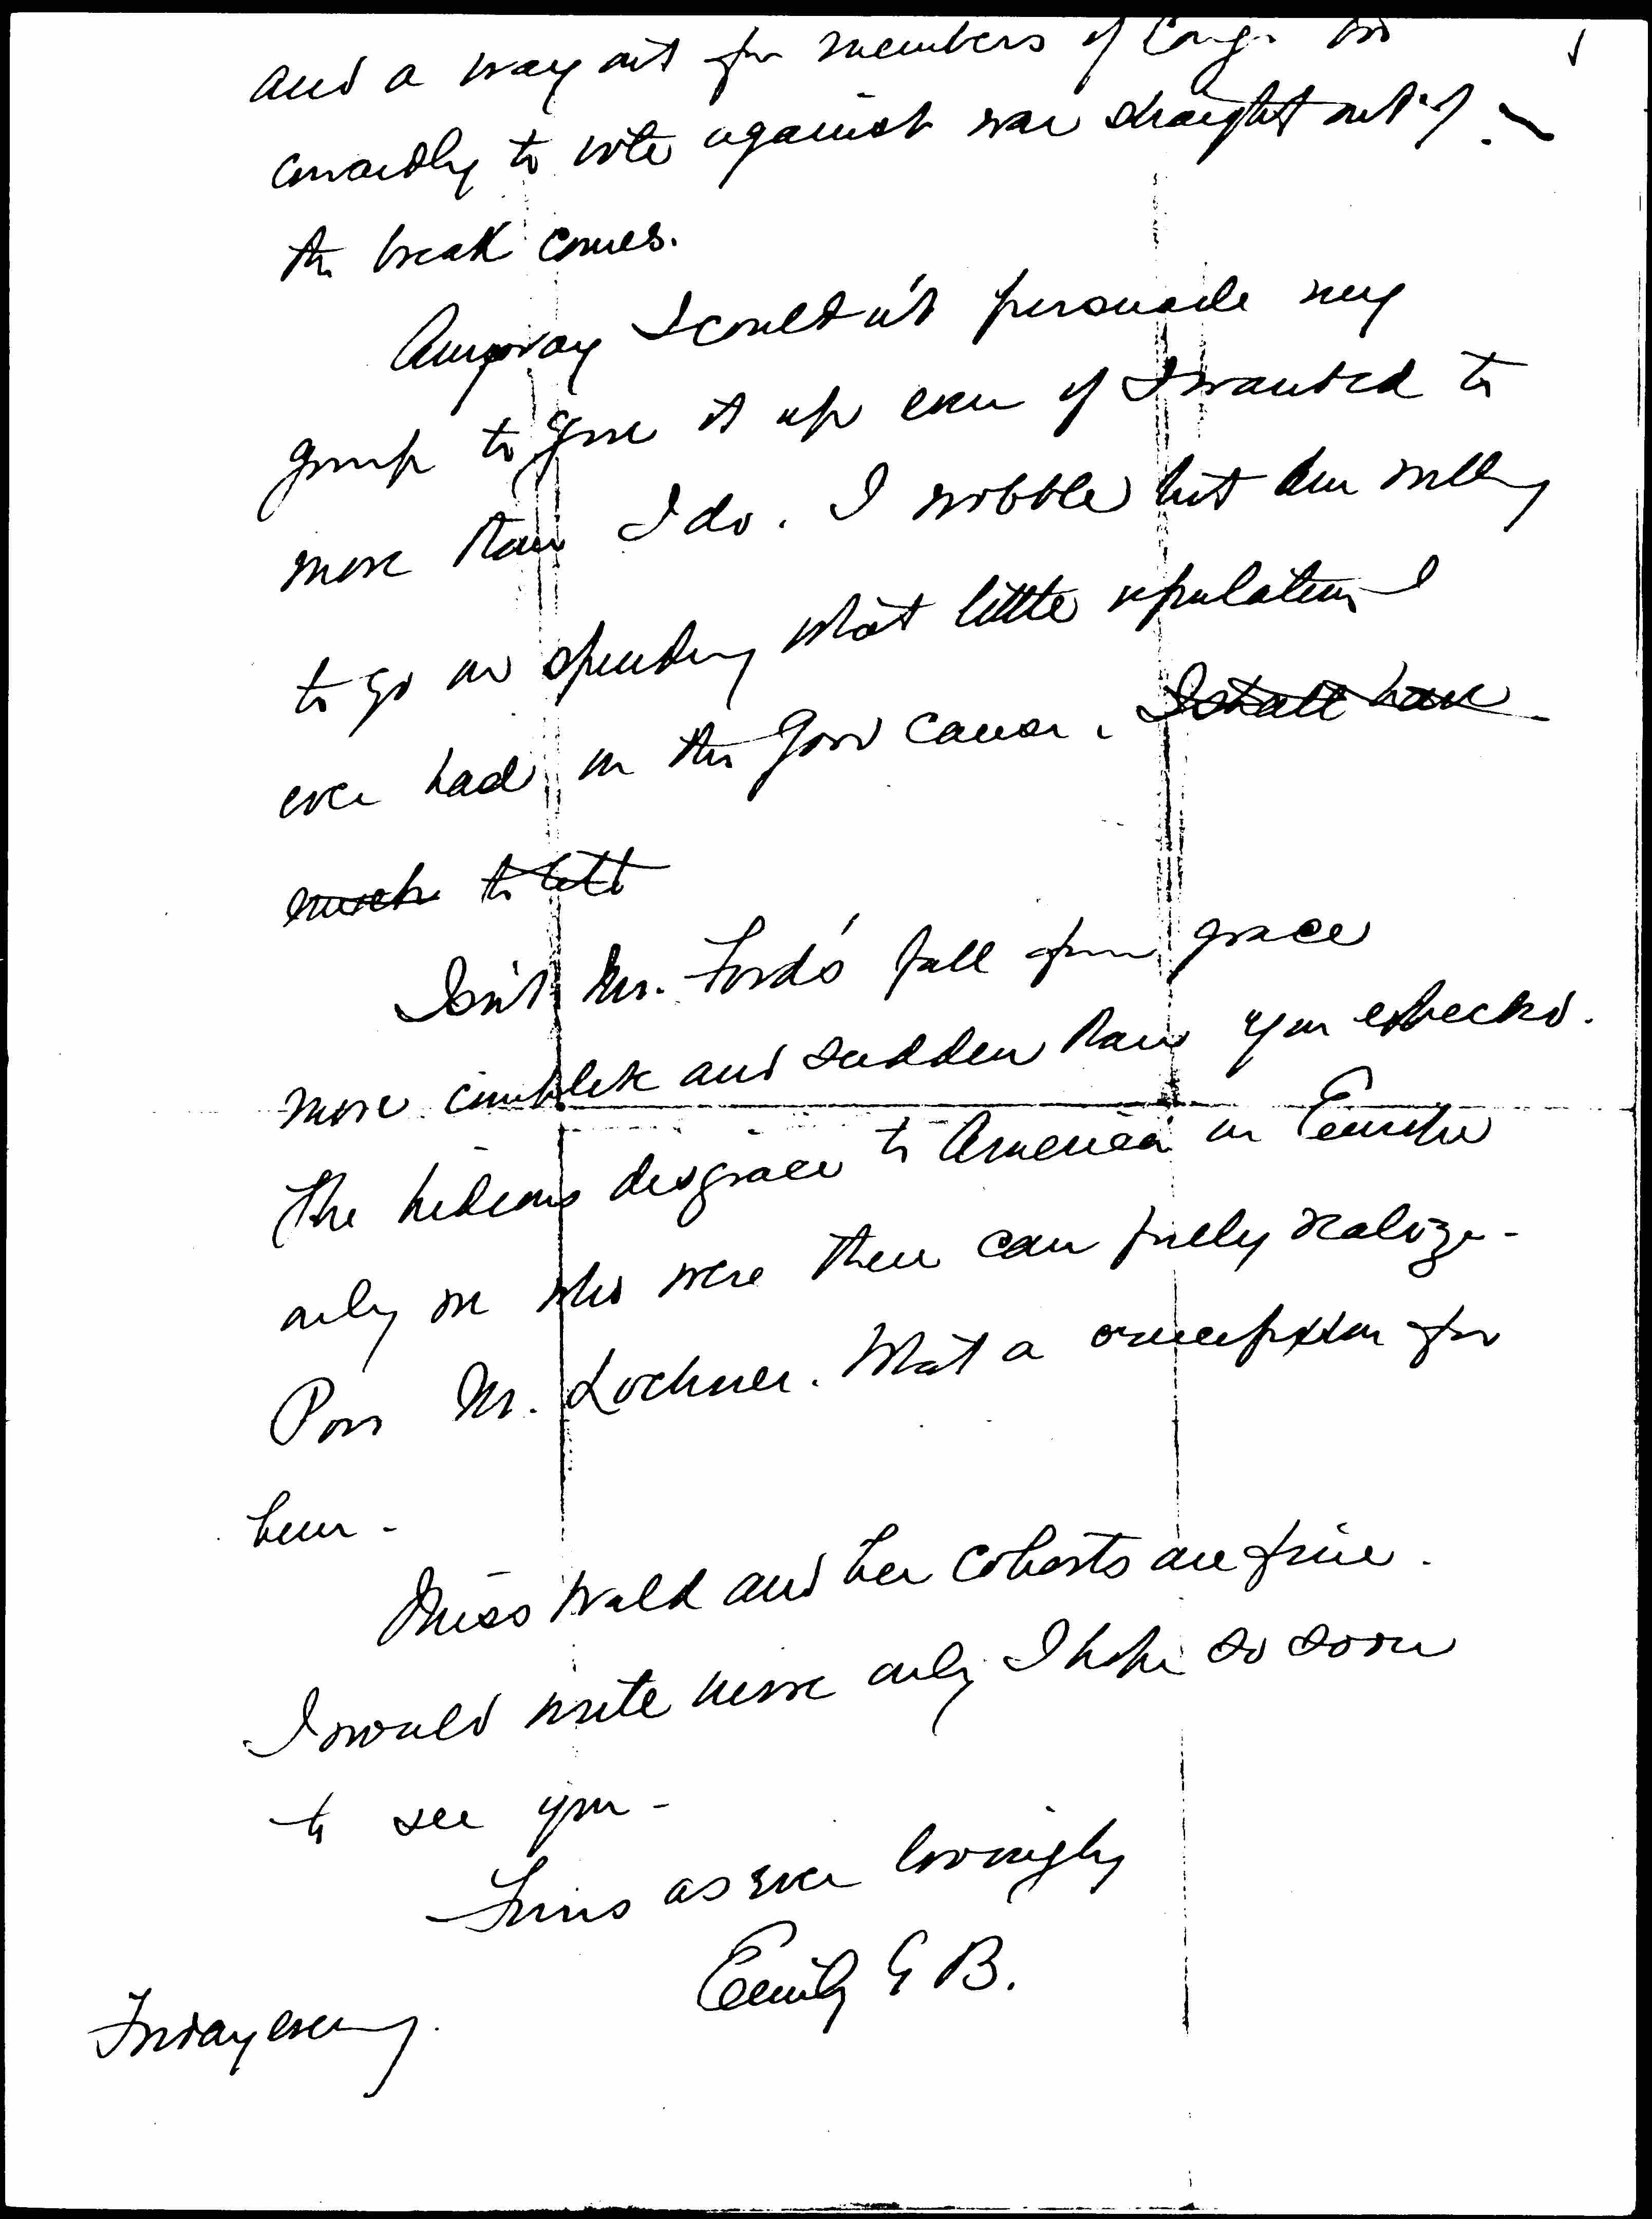 and a way out for members of Cong. too
cowardly to vote against war straight out if
the break comes.
Anyway I couldn't persuade my
group to give it up even if I wanted to
more than I do. I wobble but am willing
to go on spending what little reputation I
ever had in the good cause. I shall have
much to tell
Isn't Mr. Ford's fall from grace
more complete and sudden than you expected.
The hideous disgrace to America in Europe
only we who were there can fully realize -
Poor Mr. Lochner. What a crucifixion for
him -
Miss Wald and her cohorts are fine.
I would write more only I hope so soon
to see you -
Yours as ever lovingly
Emily G B.
Friday evening.